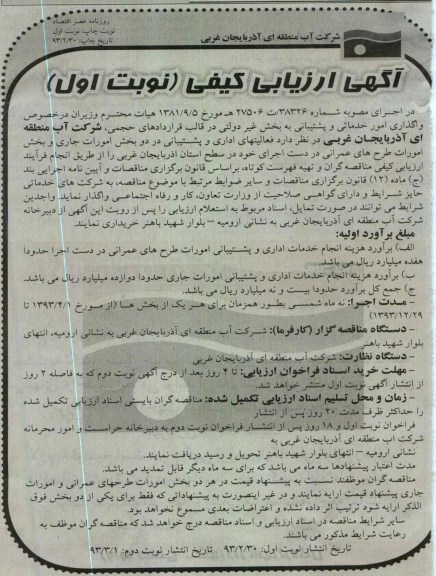 روزنامه عصر اقتصاد
نوبت چاپ: نوبت اول
تاریخ چاپ: ۹۳/۲/۳۰
شرکت آب منطقه ای آذربایجان غربی
آگهی ارزیابی کیفی (نوبت اول)
در اجرای مصوبه شماره ۳۸۳۲۶/ت ۲۷۵۰۶ هـ مورخ ۱۳۸۱/۹/۵ هیات محترم وزیران درخصوص
واگذاری امور خدماتی و پشتیبانی به بخش غیر دولتی در قالب قراردادهای حجمی، شرکت آب منطقه
ای آذربایجان غربی در نظر دارد فعالیتهای اداری و پشتیبانی در دو بخش امورات جاری و بخش
امورات طرح های عمرانی در دست اجرای خود در سطح استان اذربایجان غربی را از طریق انجام فرآیند
ارزیابی کیفی مناقصه گران و تهیه فهرست کوتاه، براساس قانون برگزاری مناقصات و آیین نامه اجرایی بند
(ج) ماده (۱۲) قانون برگزاری مناقصات و سایر ضوابط مرتبط با موضوع مناقصه، به شرکت های خدماتی
حایز شرایط و دارای گواهی صلاحیت از وزارت تعاون، کار و رفاه اجتماعی واگذار نماید. واجدین
شرایط می توانند در صورت تمایل، اسناد مربوط به استعلام ارزیابی را پس از رویت این آگهی از دبیرخانه
شرکت آب منطقه ای آذربایجان غربی به نشانی ارومیه – بلوار شهید باهنر خریداری نمایند.
مبلغ برآورد اولیه:
الف) برآورد هزینه انجام خدمات اداری و پشتیبانی امورات طرح های عمرانی در دست اجرا حدودا
هفده میلیارد ریال می باشد.
ب) برآورد هزینه انجام خدمات اداری و پشتیبانی امورات جاری حدودا دوازده میلیارد ریال می باشد.
ج) جمع کل برآورد حدودا بیست و نه میلیارد ریال می باشد.
– مدت اجرا: نه ماه شمسی بطور همزمان برای هر یک از بخش ها (از مورخ ۱۳۹۳/۴/۱ تا
۱۳۹۳/۱۲/۲۹)
– دستگاه مناقصه گزار (کارفرما): شرکت آب منطقه ای آذربایجان غربی به نشانی ارومیه، انتهای
بلوار شهید باهنر
– دستگاه نظارت: شرکت آب منطقه ای آذربایجان غربی
– مهلت خرید اسناد فراخوان ارزیابی: تا ۴ روز بعد از درج آگهی نوبت دوم که به فاصله ۲ روز
از انتشار آگهی نوبت اول منتشر خواهد شد.
– زمان و محل تسلیم اسناد ارزیابی تکمیل شده: مناقصه گران بایستی اسناد ارزیابی تکمیل شده
را حداکثر ظرف مدت ۲۰ روز پس از انتشار
فراخوان نوبت اول و ۱۸ روز پس از انتشار فراخوان نوبت دوم به دبیرخانه حراست و امور محرمانه
شرکت آب منطقه ای آذربایجان غربی به
نشانی ارومیه – انتهای بلوار شهید باهنر تحویل و رسید دریافت نمایند.
مدت اعتبار پیشنهادها سه ماه می باشد که برای سه ماه دیگر قابل تمدید می باشد.
مناقصه گران موظفند نسبت به پیشنهاد قیمت در هر دو بخش امورات طرحهای عمرانی و امورات
جاری پیشنهاد قیمت ارایه نمایند و در غیر اینصورت به پیشنهاداتی که فقط برای یکی از دو بخش فوق
الذکر ارایه شود ترتیب اثر داده نشده و اعتراضات بعدی مسموع نخواهد بود.
سایر شرایط مناقصه در اسناد ارزیابی و اسناد مناقصه درج خواهد شد که مناقصه گران موظف به
رعایت شرایط مذکور می باشند.
تاریخ انتشار نوبت اول: ۹۳/۲/۳۰ تاریخ انتشار نوبت دوم: ۹۳/۳/۱